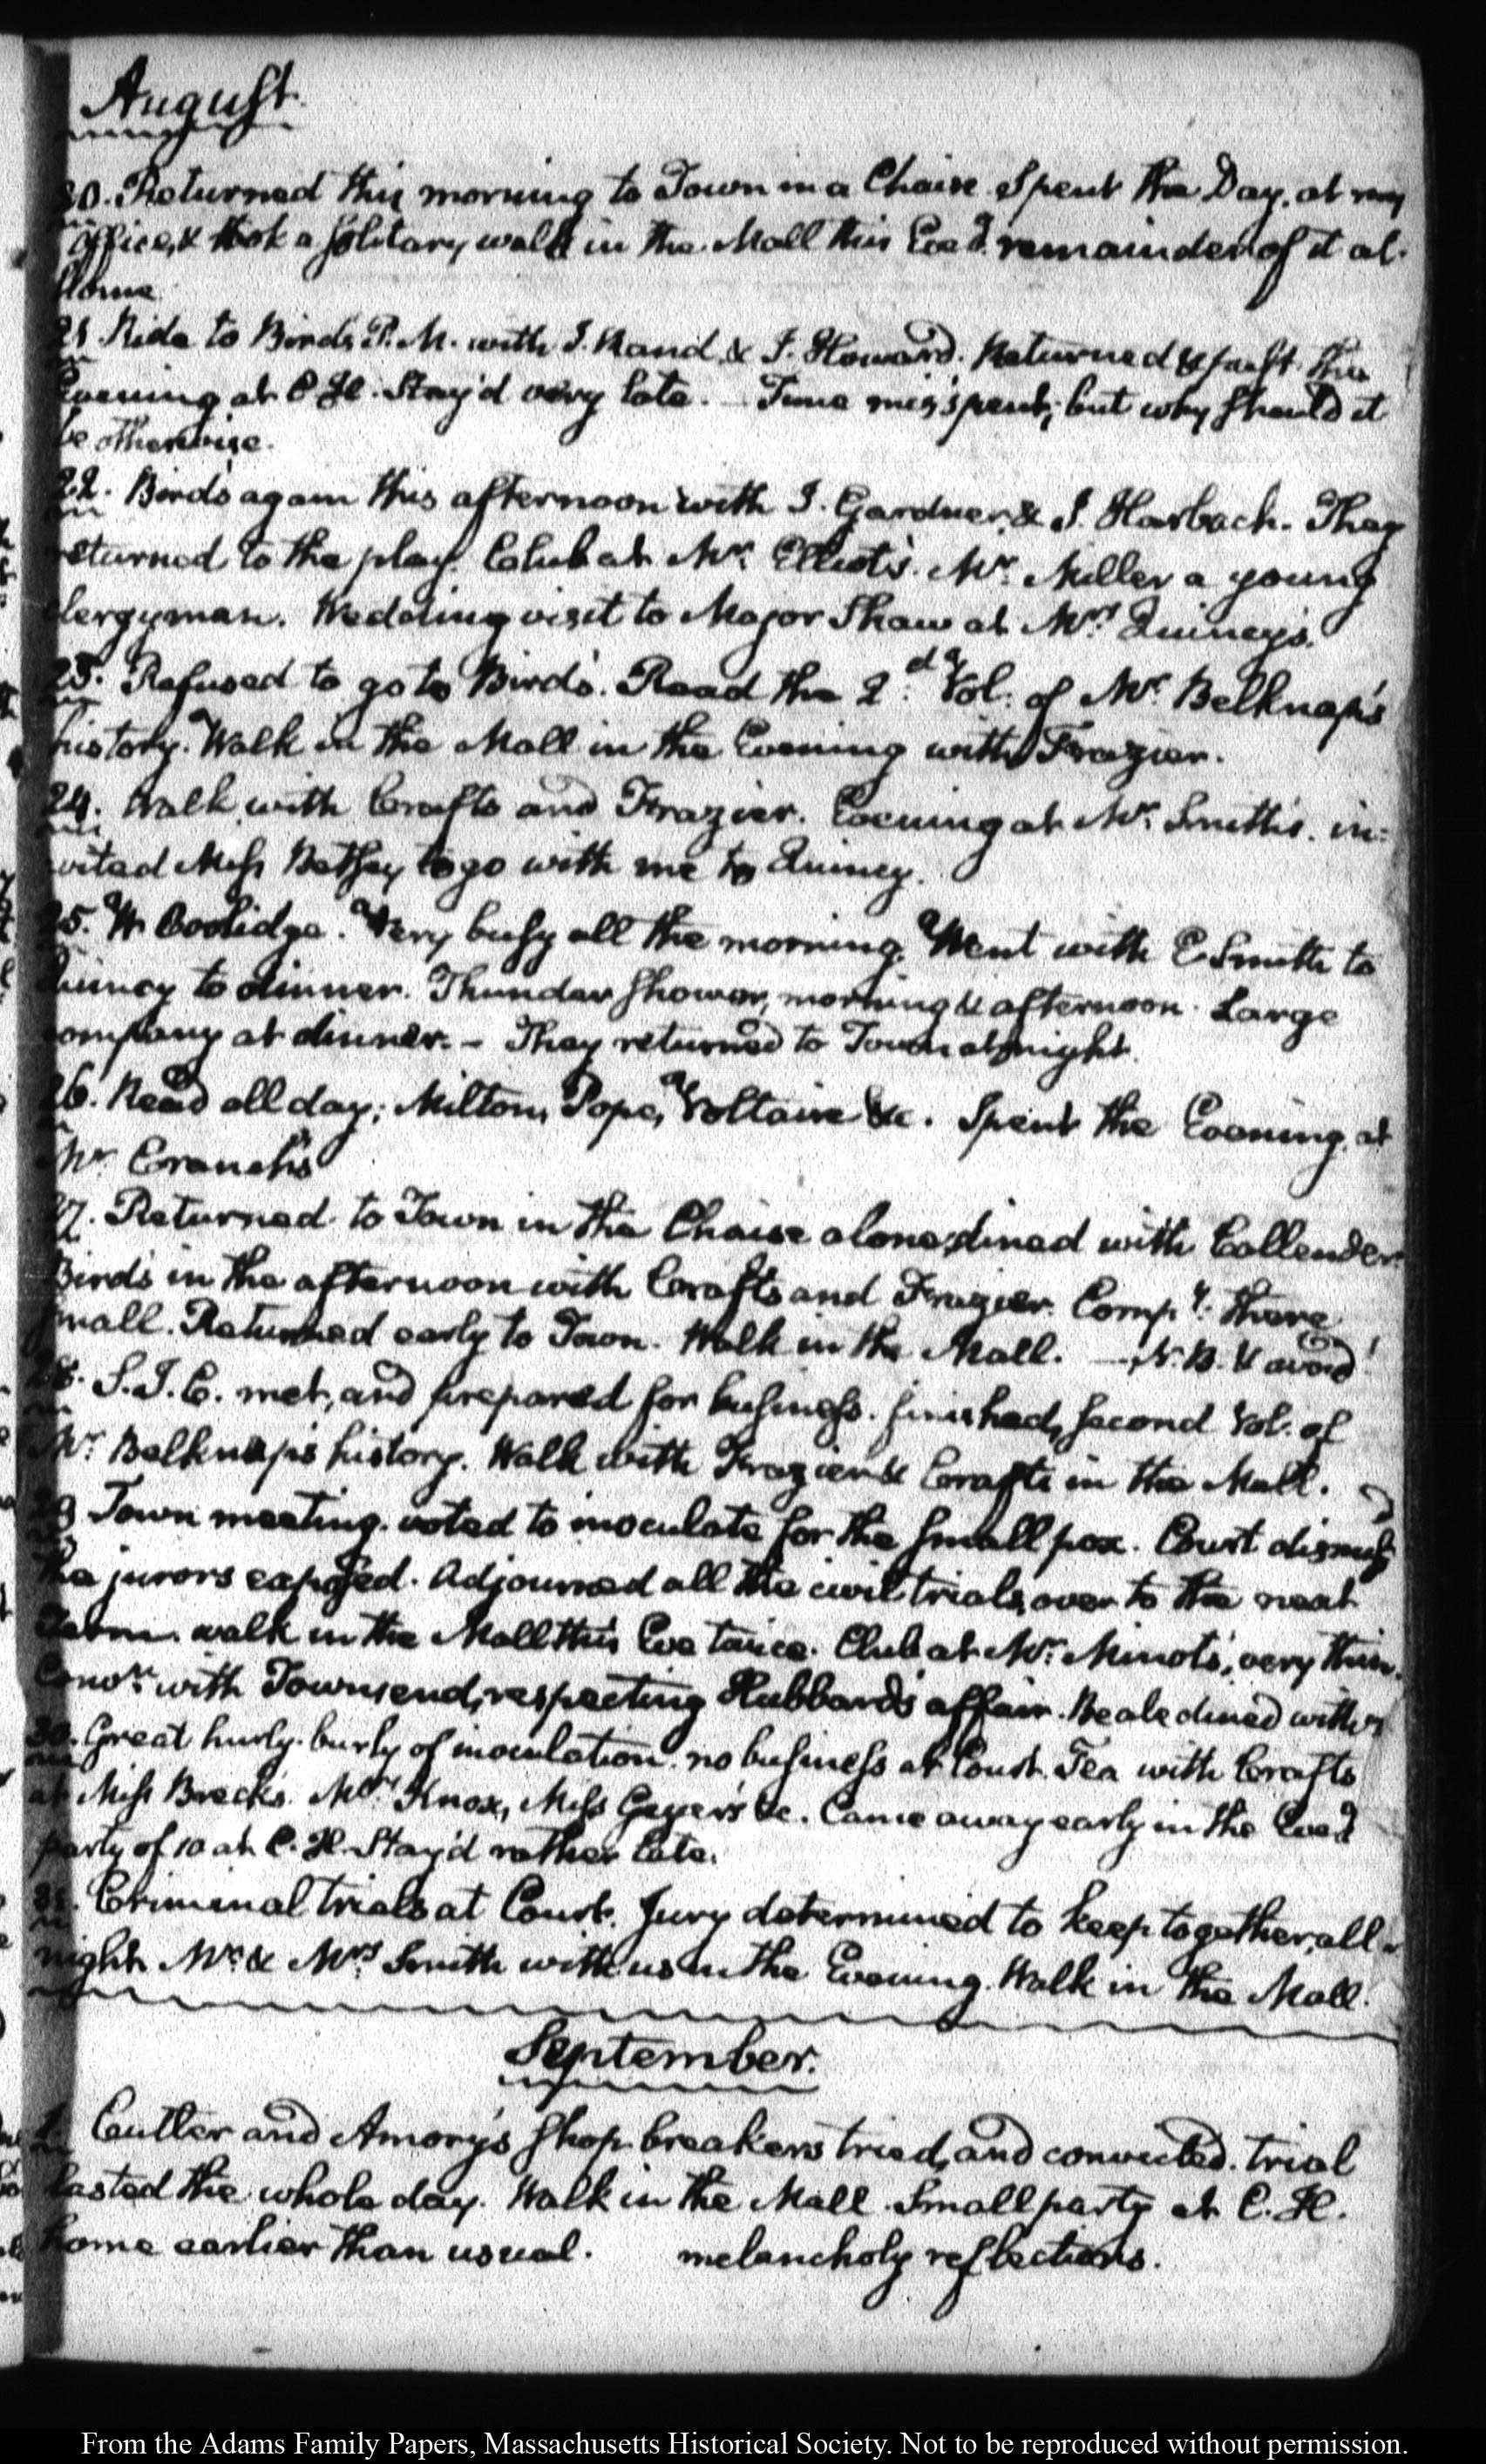 August.
20. Returned this morning to Town in a Chaise. Spent the Day, at my
office, & took a solitary walk in the Mall this Eveg. remainder of it at
Home.
21. Ride to Birds P.M. with I. Rand & J. Howard. Returned & past the
Evening at C H. Stay'd very late. — Time mis'spent; but why should it
be otherwise.
22. Bird's again this afternoon with J. Gardner & J. Harbach. They
returned to the play. Club at Mr. Elliot's. Mr. Miller a young
clergyman. Wedding visit to Major Shaw at Mrs. Quincy's.
23. Refused to go to Bird's. Read the 2d. Vol: of Mr. Belknap's
history. Walk in the Mall in the Evening with Frazier.
24. Walk with Crafts and Frazier. Evening at Mr. Smith's. in:
vited Miss Betsey to go with me to Quincy.
25. W Coolidge. Very busy all the morning. Went with E Smith to
Quincy to dinner. Thunder shower, morning & afternoon. Large
company at dinner. — They returned to Town at night.
26. Read all day; Milton, Pope, Voltaire &c. Spent the Evening, at
Mr Cranch's
27. Returned to Town in the Chaise alone; dined with Callender.
Birds in the afternoon with Crafts and Frazier. Compy. there
small. Returned early to Town. Walk in the Mall. — N.B. & avoid!
28. S.J.C. met, and prepared for business. finished, second Vol. of
Mr. Belknap's history. Walk with Frazier & Crafts in the Mall.
29 Town meeting. voted to inoculate for the small pox. Court dismiss'd
the jurors exposed. Adjourned all the civil trials, over to the next
Term. walk in the Mall this Eve twice. Club at Mr. Minot's, very thin.
Convn. with Townsend, respecting Hubbard's affair. Beale dined with
30. Great hurly-burly of inoculation. no business at Court. Tea with Crafts
at Miss Breck's. Mrs. Knox, Miss Geyer's &c. Came away early in the Eveg
party of 10 at C. H. Stay'd rather late.
31. Criminal trials at Court. Jury determined to keep together, all
night. Mr. & Mrs. Smith with us in the Evening. Walk in the Mall.
September.
1. Cutler and Amory's shop-breakers tried, and convicted. trial
lasted the whole day. Walk in the Mall. Small party at C. H.
home earlier than usual. melancholy reflections.
From the Adams Family Papers, Massachusetts Historical Society. Not to be reproduced without permission.